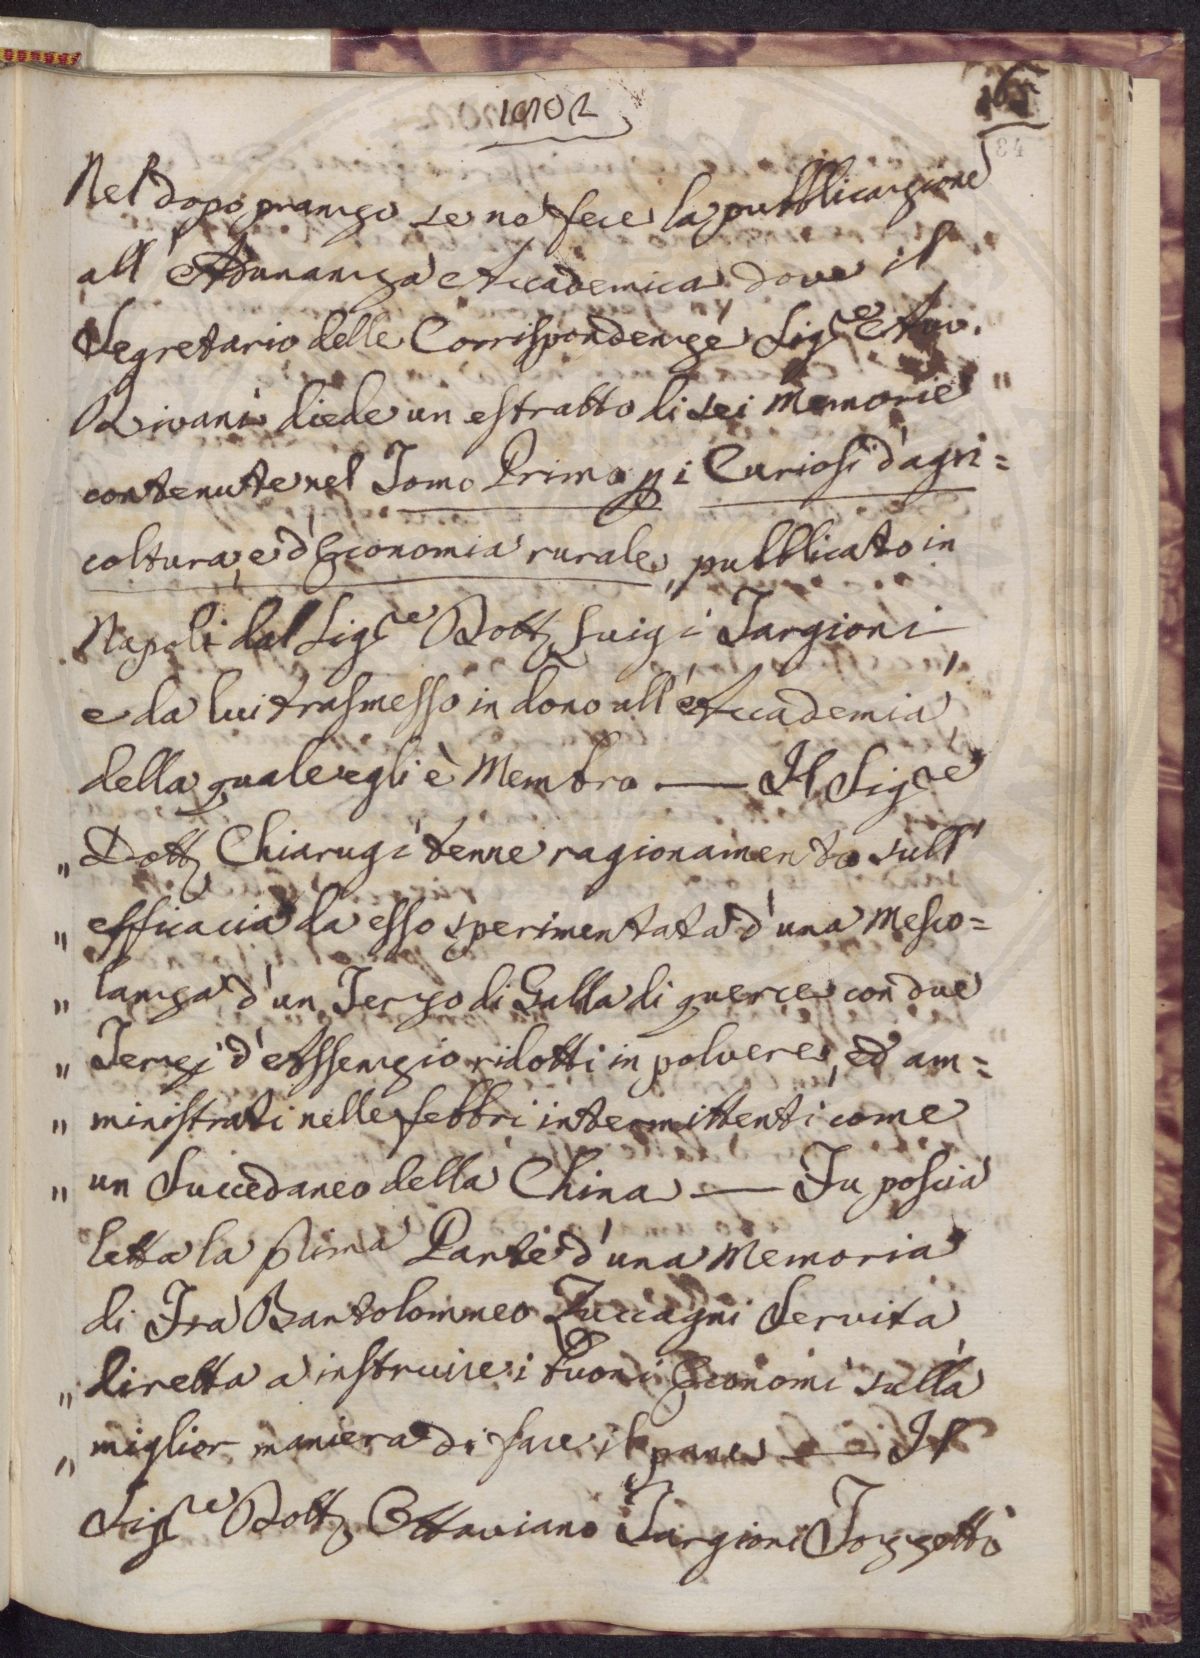 1802
84
Nel dopo pranzo se ne fece la pubblicazione
all' Adunanza Accademica dove il
Segretario delle Corrispondenze Sigre Avv.
Rivani diede un estratto di sei Memorie "
contenute nel Tomo Primo pi Curiosi d'agri=
coltura, e d'Economia rurale,, pubblicato in
Napoli dal Sigre Dott Luigi Targioni
e da lui trasmesso in dono all' Accademia,
della quale egli è Membro — Il Sigre
" Dott Chiarugi tenne ragionamento sull'
" efficacia da esso sperimentata d'una Mesco=
" lanza d'un Terzo di Galla di querce con due
" Terzi d'Assenzio ridotti in polvere, ed am=
" ministrati nelle febbri intermittenti come
" un Succedaneo della China — Fu poscia
letta la prima Parte d'una Memoria
di Fra Bartolommeo Zuccagni Servita
" diretta a instruire i buoni Economi sulla
" miglior maniera di fare il pane — Il
Sigre Dott Ottaviano Targioni Tozzetti